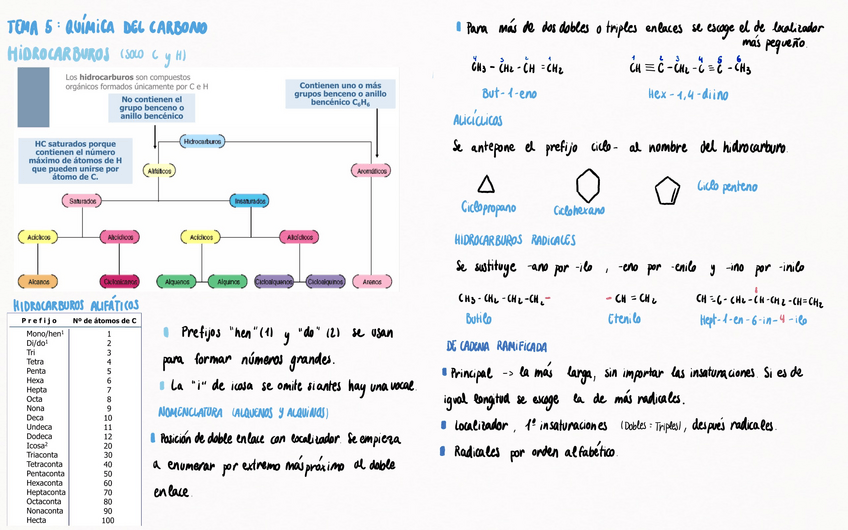 TEMA 5: QUÍMICA DEL CARBONO
HIDROCARBUROS (SOLO C y H)
Los hidrocarburos son compuestos
orgánicos formados únicamente por C e H
No contienen el
grupo benceno o
anillo bencénico
Contienen uno o más
grupos benceno o anillo
bencénico C₆H₆
HC saturados porque
contienen el número
máximo de átomos de H
que pueden unirse por
átomo de C.
Hidrocarburos
Alifáticos
Aromáticos
Saturados
Insaturados
Acíclicos
Alicíclicos
Acíclicos
Alicíclicos
Alcanos
Cicloalcanos
Alquenos
Alquinos
Cicloalquenos
Cicloalquinos
Arenos
HIDROCARBUROS ALIFÁTICOS
Prefijo Nº de átomos de C
Mono/hen¹ 1
Di/do¹ 2
Tri 3
Tetra 4
Penta 5
Hexa 6
Hepta 7
Octa 8
Nona 9
Deca 10
Undeca 11
Dodeca 12
Icosa² 20
Triaconta 30
Tetraconta 40
Pentaconta 50
Hexaconta 60
Heptaconta 70
Octaconta 80
Nonaconta 90
Hecta 100
Prefijos "hen" (1) y "do" (2) se usan
para formar números grandes.
La "i" de icosa se omite si antes hay una vocal.
NOMENCLATURA (ALQUENOS Y ALQUINOS)
Posición de doble enlace con localizador. Se empieza
a enumerar por extremo más próximo al doble
enlace.
Para más de dos dobles o triples enlaces se escoge el de localizador
más pequeño.
4 3 2 1
CH₃ - CH₂ - CH = CH₂
1 2 3 4 5 6
CH ≡ C - CH₂ - C ≡ C - CH₃
But-1-eno
Hex-1,4-diino
ALICÍCLICOS
Se antepone el prefijo ciclo- al nombre del hidrocarburo.
Ciclopropano
Ciclohexano
Ciclo penteno
HIDROCARBUROS RADICALES
Se sustituye -ano por -ilo, -eno por -enilo y -ino por -inilo
CH₃ - CH₂ - CH₂ - CH₂ -
- CH = CH₂
CH ≡ C - CH₂ - CH - CH₂ - CH = CH₂
Butilo
Etenilo
Hept-1-en-6-in-4-ilo
DE CADENA RAMIFICADA
Principal -> la más larga, sin importar las insaturaciones. Si es de
igual longitud se escoge la de más radicales.
Localizador, 1º insaturaciones (Dobles = Triples), después radicales.
Radicales por orden alfabético.